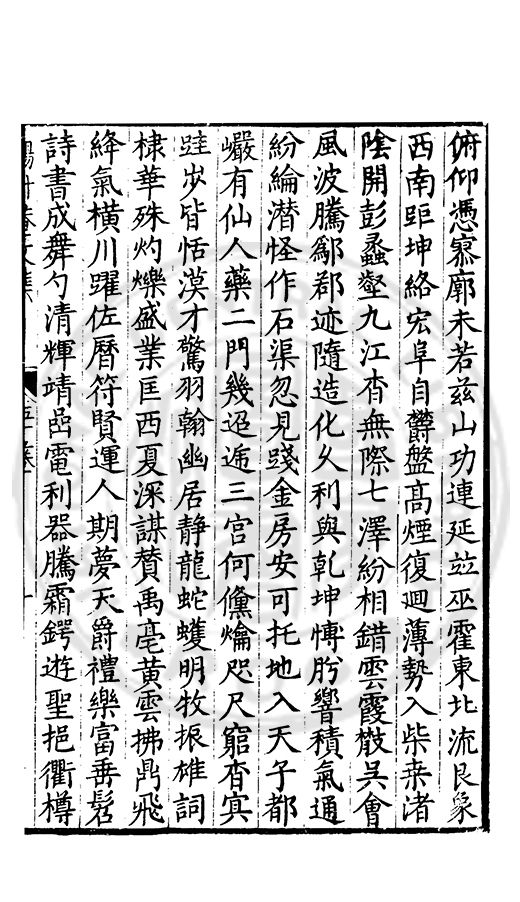 俯仰憑寥廓未若茲山功連延竝巫霍東北流艮象
西南距坤絡宏阜自欝盤高煙復迴薄勢入柴桒渚
陰開彭蠡壑九江杳無際七澤紛相錯雲霞散吳會
風波騰鄢郡迹隨造化久利與乹坤愽肹響積氣通
紛綸潜怪作石渠忽見踐金房安可托地入天子都
巗有仙人藥二門幾迢遞三宮何儵爚咫尺窮杳㝠
跬歩皆恬漠才驚羽翰幽居静龍蛇蠖明牧振雄詞
棣華殊灼爍盛業匡西夏深謀賛禹亳黄雲拂鼎飛
絳氣橫川躍佐曆符賢運人期夢天爵禮樂富垂髫
詩書成舞勺清輝靖嵒電利器騰霜鍔遊聖挹衢樽